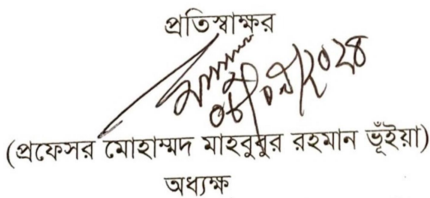 প্রতিস্বাক্ষর
(প্রফেসর মোহাম্মদ মাহবুবুর রহমান ভূঁইয়া)
অধ্যক্ষ